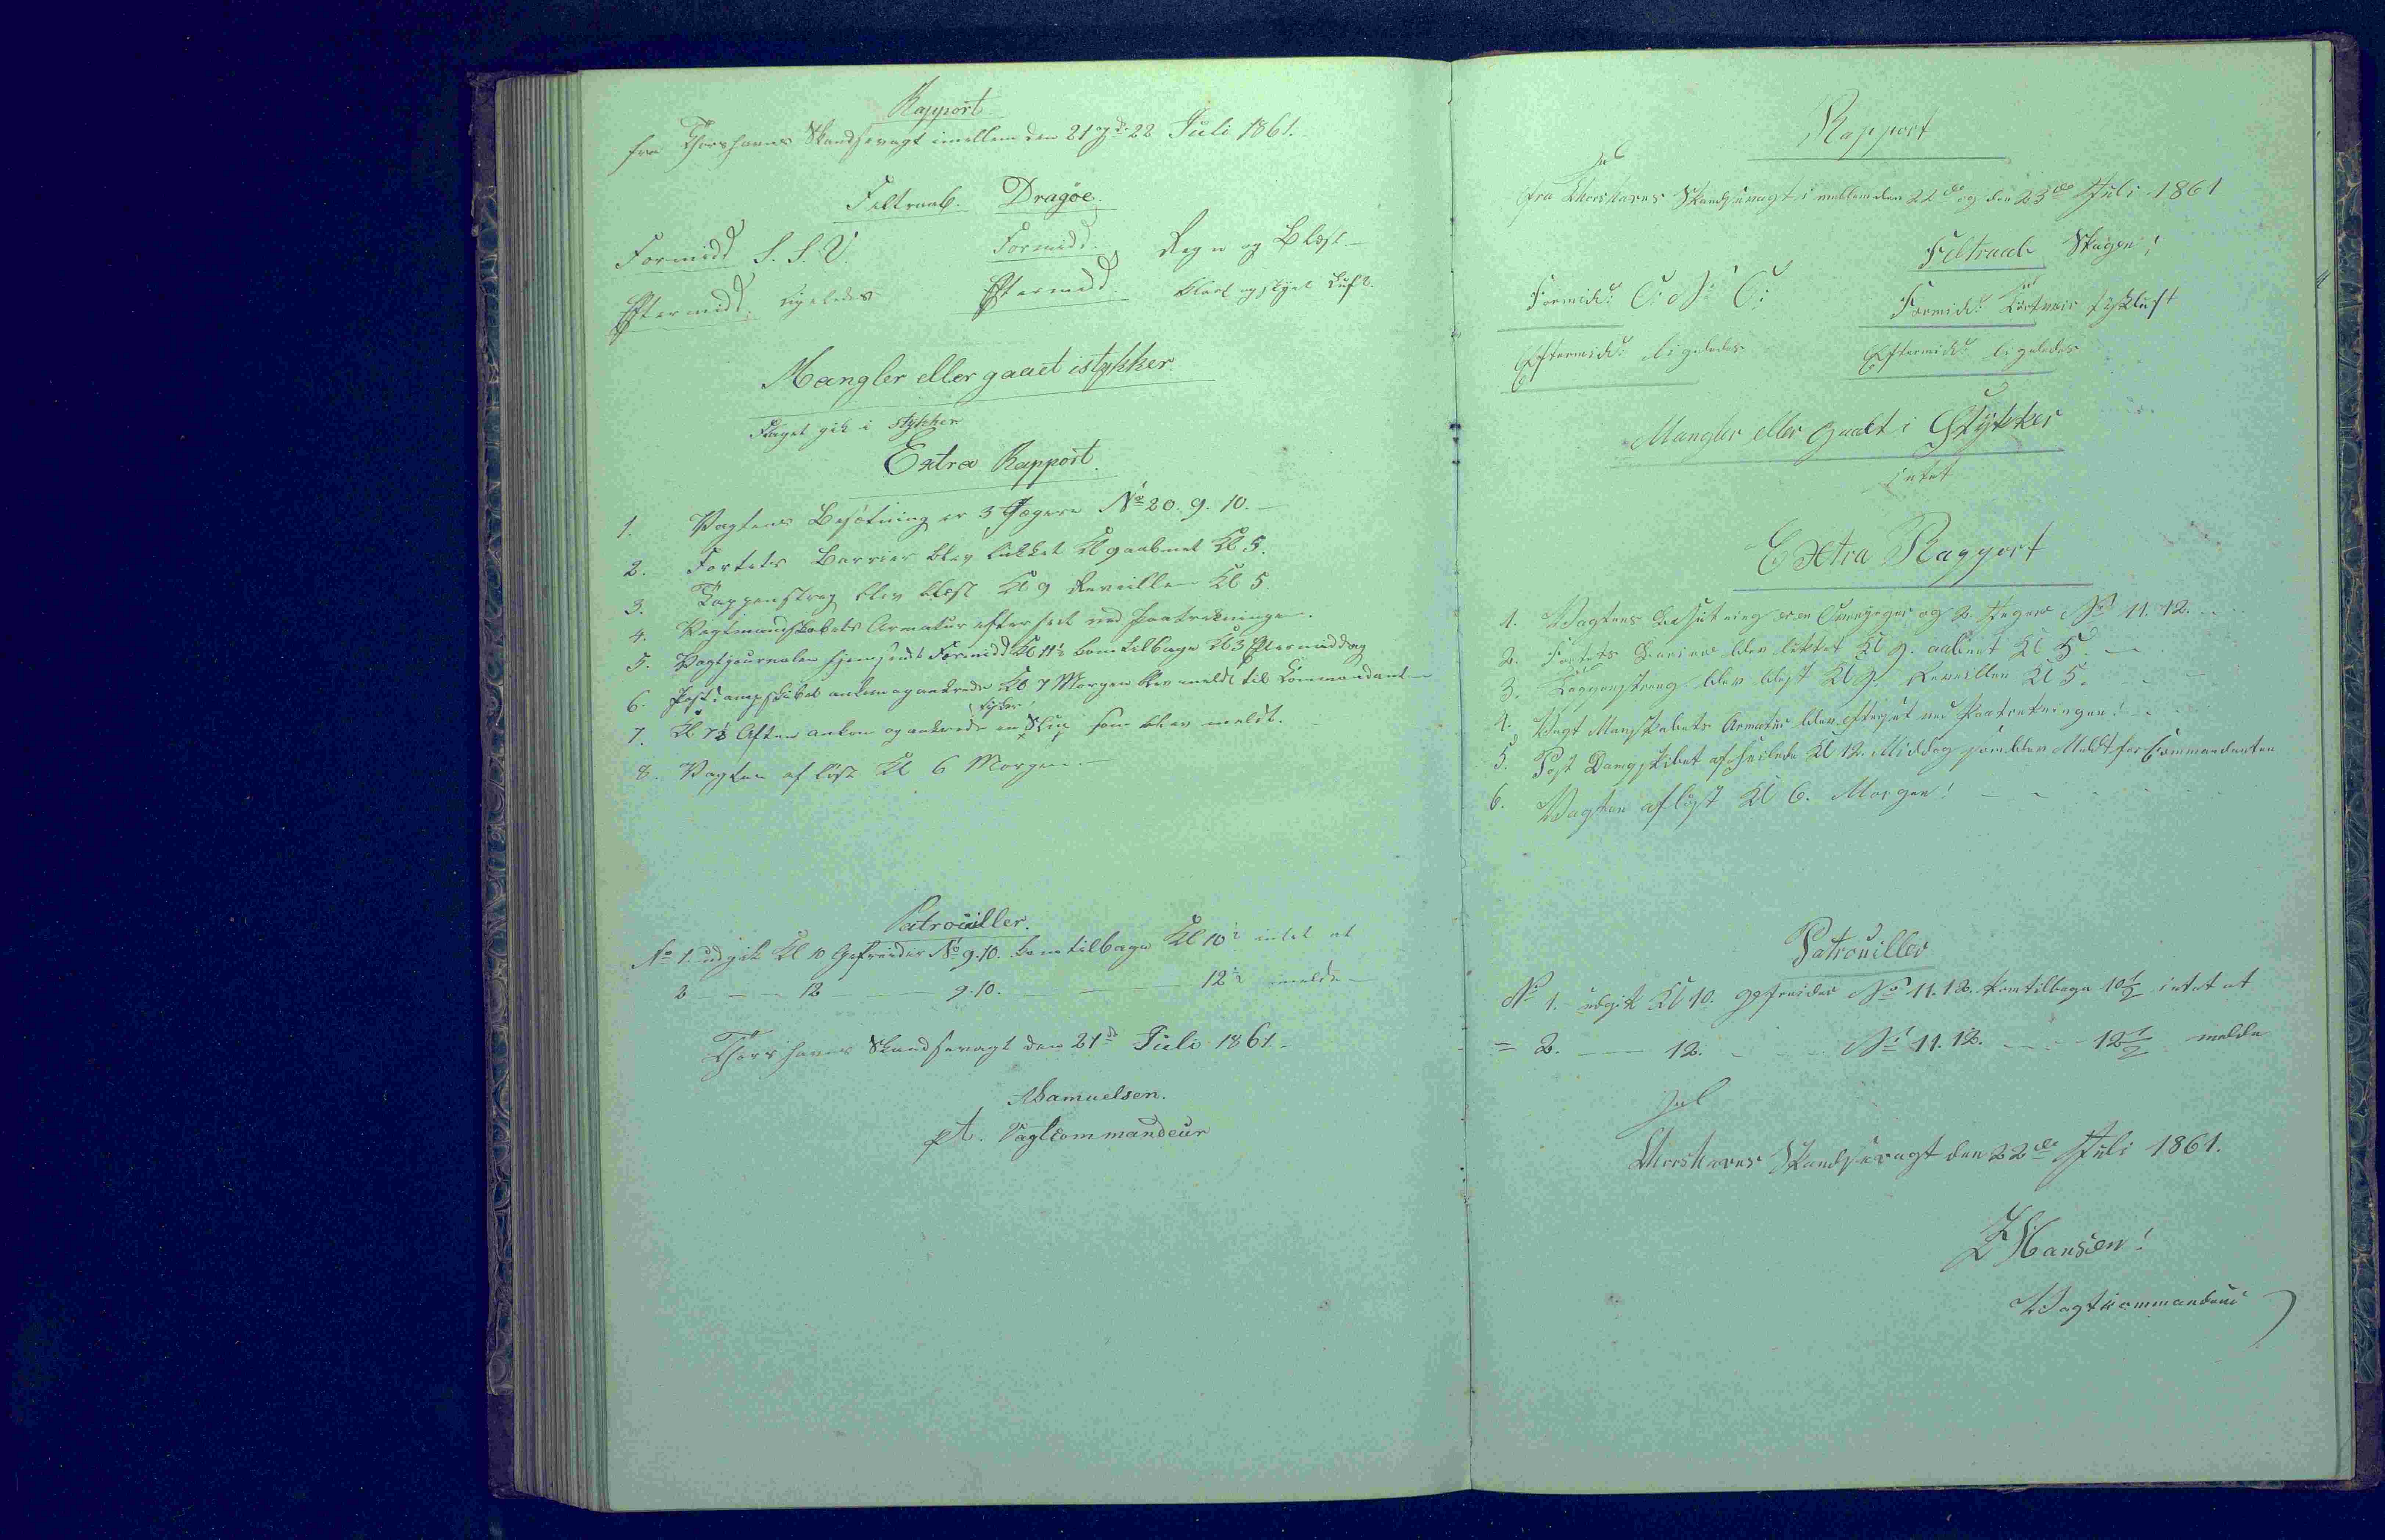 Rapport
fra Thorshavns Skandsevagt imellem den 21 og d: 22 Juli 1861.
Feltraab. Dragöe.
Formidd S. S. V. Formidd. Regn og Blæst
Eftermidd. ligeledes Eftermidd klart og skyet Luft.
Mangler eller gaaet istykker.
Flaget gik i stykker
Extra Rapport.
1. Vagtens Besætning er 3 Jægere No 20. 9. 10.
2. Fortets Barrier blev lukket Kl 9 aabnet Kl 5.
3. Tappenstreg blev blæst Kl 9 Reveillen Kl 5
4. Vagtmandskabets Armatur efterseet ved Paatrædningen.
5. Vagtjournalen hjemsendt Formidd Kl 11½ kom tilbage Kl 3 Eftermiddag
6. Postdampskibet ankom og ankrede Kl 7 Morgen blev meldt til Commandant
7. Kl 7½ Aften ankom og ankrede en Skip som blev meldt.
8. Vagten afløst Kl 6 Morgen.
Patrouiller.
No 1. udgik Kl 10 Gefreider No 9. 10. kom tilbage Kl 10½ intet at
2 — 12 — 9. 10. — 12½ melde
Thorshavns Skandsevagt den 21d Juli 1861.
Samuelsen.
pt. Vagtcommandeur
Rapport
fra Thorshavns Skandsevagt imellem den 22de og den 23de Juli 1861
Feltraab Skagen!
Formidd: Formidd: tyk luft
Eftermidd: ligeledes Eftermidd: ligeledes
Mangler eller Gaaet i Stykker
intet
Extra Rapport
1. Vagtens Besætning er en Overjæger og 2 Jægere No 11. 12.
2. Fortets Bariere blev lukket Kl 9. aabnet Kl 5
3. Tappenstreg blev blæst Kl 9. Reveillen Kl 5.
4. Vagt Mandskabets Armatur blev efterset ved Paatredningen!
5. Post Dampskibet afseilede Kl 12. Middag som blev Meldt for Commandanten
6. Vagten afløst Kl 6. Morgen!
Patrouiller
No 1. udgik Kl 10. Gefreider No 11. 12. kom tilbage 10½ intet at
= 2. — 12. — No 11. 12. — 12½ melde
Thorshavns Skandsevagt den 22de Juli 1861.
Hansen!
Vagtkommandeur